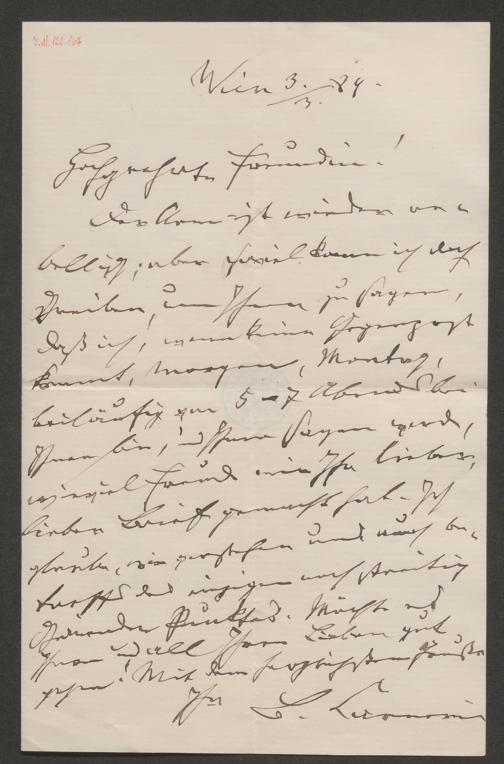 Wien 3./3. 89.
Hochgeehrte Freundin!
Der Arm ist wieder re-
bellisch; aber soviel kann ich doch
schreiben, um Ihnen zu sagen,
daß ich, wenn keine Gegenpost
kommt, morgen, Montag,
beiläufig von 5–7 Abends bei
Ihnen bin, und Ihnen sagen werde,
wieviel Freude mir Ihr lieber,
lieber Brief gemacht hat. Ich
glaube, wir verstehen uns auch be-
treffs des einzigen noch streitig
Punktes. Möchte es
Ihnen und all Ihren Lieben gut
gehen! Mit den herzlichsten Grüßen
Ihr